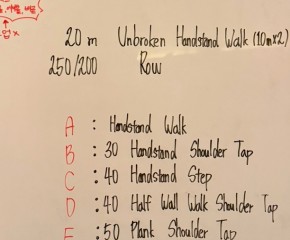 20 m Unbroken Handstand Walk (10m x2)
250/200 Row
A : Handstand Walk
B : 30 Handstand Shoulder Tap
C : 40 Handstand Step
D : 40 Half Wall Walk Shoulder Tap
E : 50 Plank Shoulder Tap